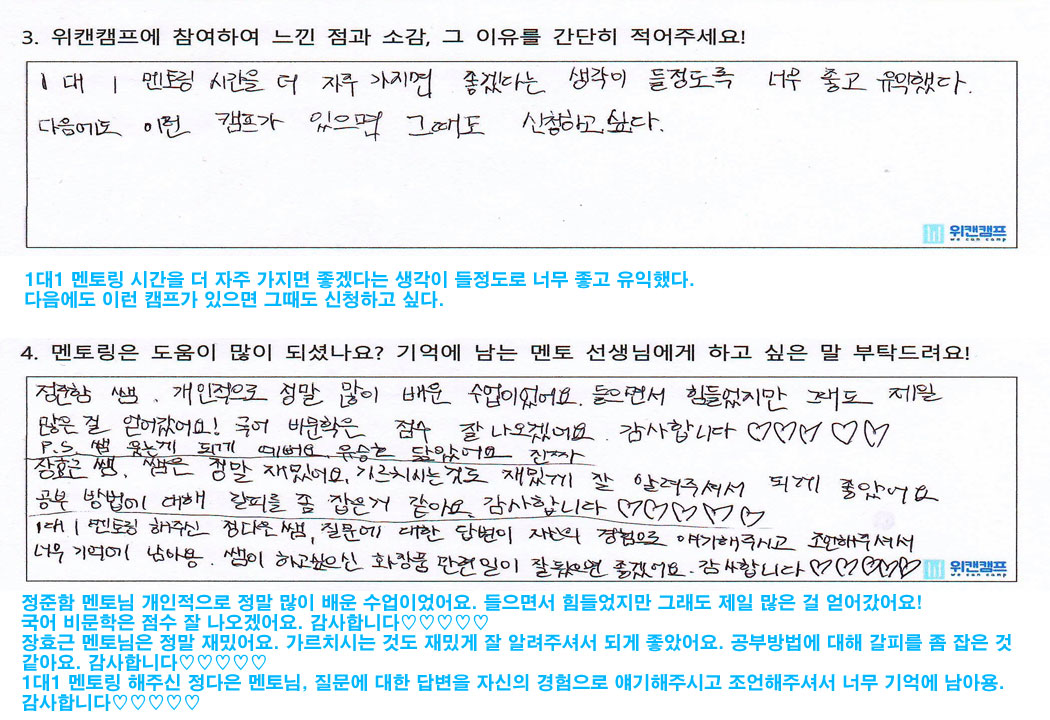 3. 위캔캠프에 참여하여 느낀 점과 소감, 그 이유를 간단히 적어주세요!
1대 1 멘토링 시간을 더 자주 가지면 좋겠다는 생각이 들정도록 너무 좋고 유익했다.
다음에도 이런 캠프가 있으면 그때도 신청하고 싶다.
위캔캠프
we can camp
1대1 멘토링 시간을 더 자주 가지면 좋겠다는 생각이 들정도로 너무 좋고 유익했다.
다음에도 이런 캠프가 있으면 그때도 신청하고 싶다.
4. 멘토링은 도움이 많이 되셨나요? 기억에 남는 멘토 선생님에게 하고 싶은 말 부탁드려요!
정준함 쌤, 개인적으로 정말 많이 배운 수업이었어요. 들으면서 힘들었지만 그래도 제일
많은 걸 얻어갔어요! 국어 비문학은 점수 잘 나오겠어요. 감사합니다 ♡♡♡♡♡
P.S. 쌤 웃는게 되게 예뻐요. 유승호 닮았어요 진짜
장효근 쌤, 쌤은 정말 재밌어요, 가르치시는 것도 재밌게 잘 알려주셔서 되게 좋았어요
공부 방법에 대해 갈피를 좀 잡은거 같아요. 감사합니다 ♡♡♡♡♡
1대 1 멘토링 해주신 정다은 쌤, 질문에 대한 답변이 자신의 경험으로 얘기해주시고 조언해주셔서
너무 기억에 남아용. 쌤이 하고싶으신 화장품 관련일이 잘 됬으면 좋겠어요. 감사합니다 ♡♡♡♡♡
위캔캠프
we can camp
정준함 멘토님 개인적으로 정말 많이 배운 수업이었어요. 들으면서 힘들었지만 그래도 제일 많은 걸 얻어갔어요!
국어 비문학은 점수 잘 나오겠어요. 감사합니다♡♡♡♡♡
장효근 멘토님은 정말 재밌어요. 가르치시는 것도 재밌게 잘 알려주셔서 되게 좋았어요. 공부방법에 대해 갈피를 좀 잡은 것
같아요. 감사합니다♡♡♡♡♡
1대1 멘토링 해주신 정다은 멘토님, 질문에 대한 답변을 자신의 경험으로 얘기해주시고 조언해주셔서 너무 기억에 남아용.
감사합니다♡♡♡♡♡